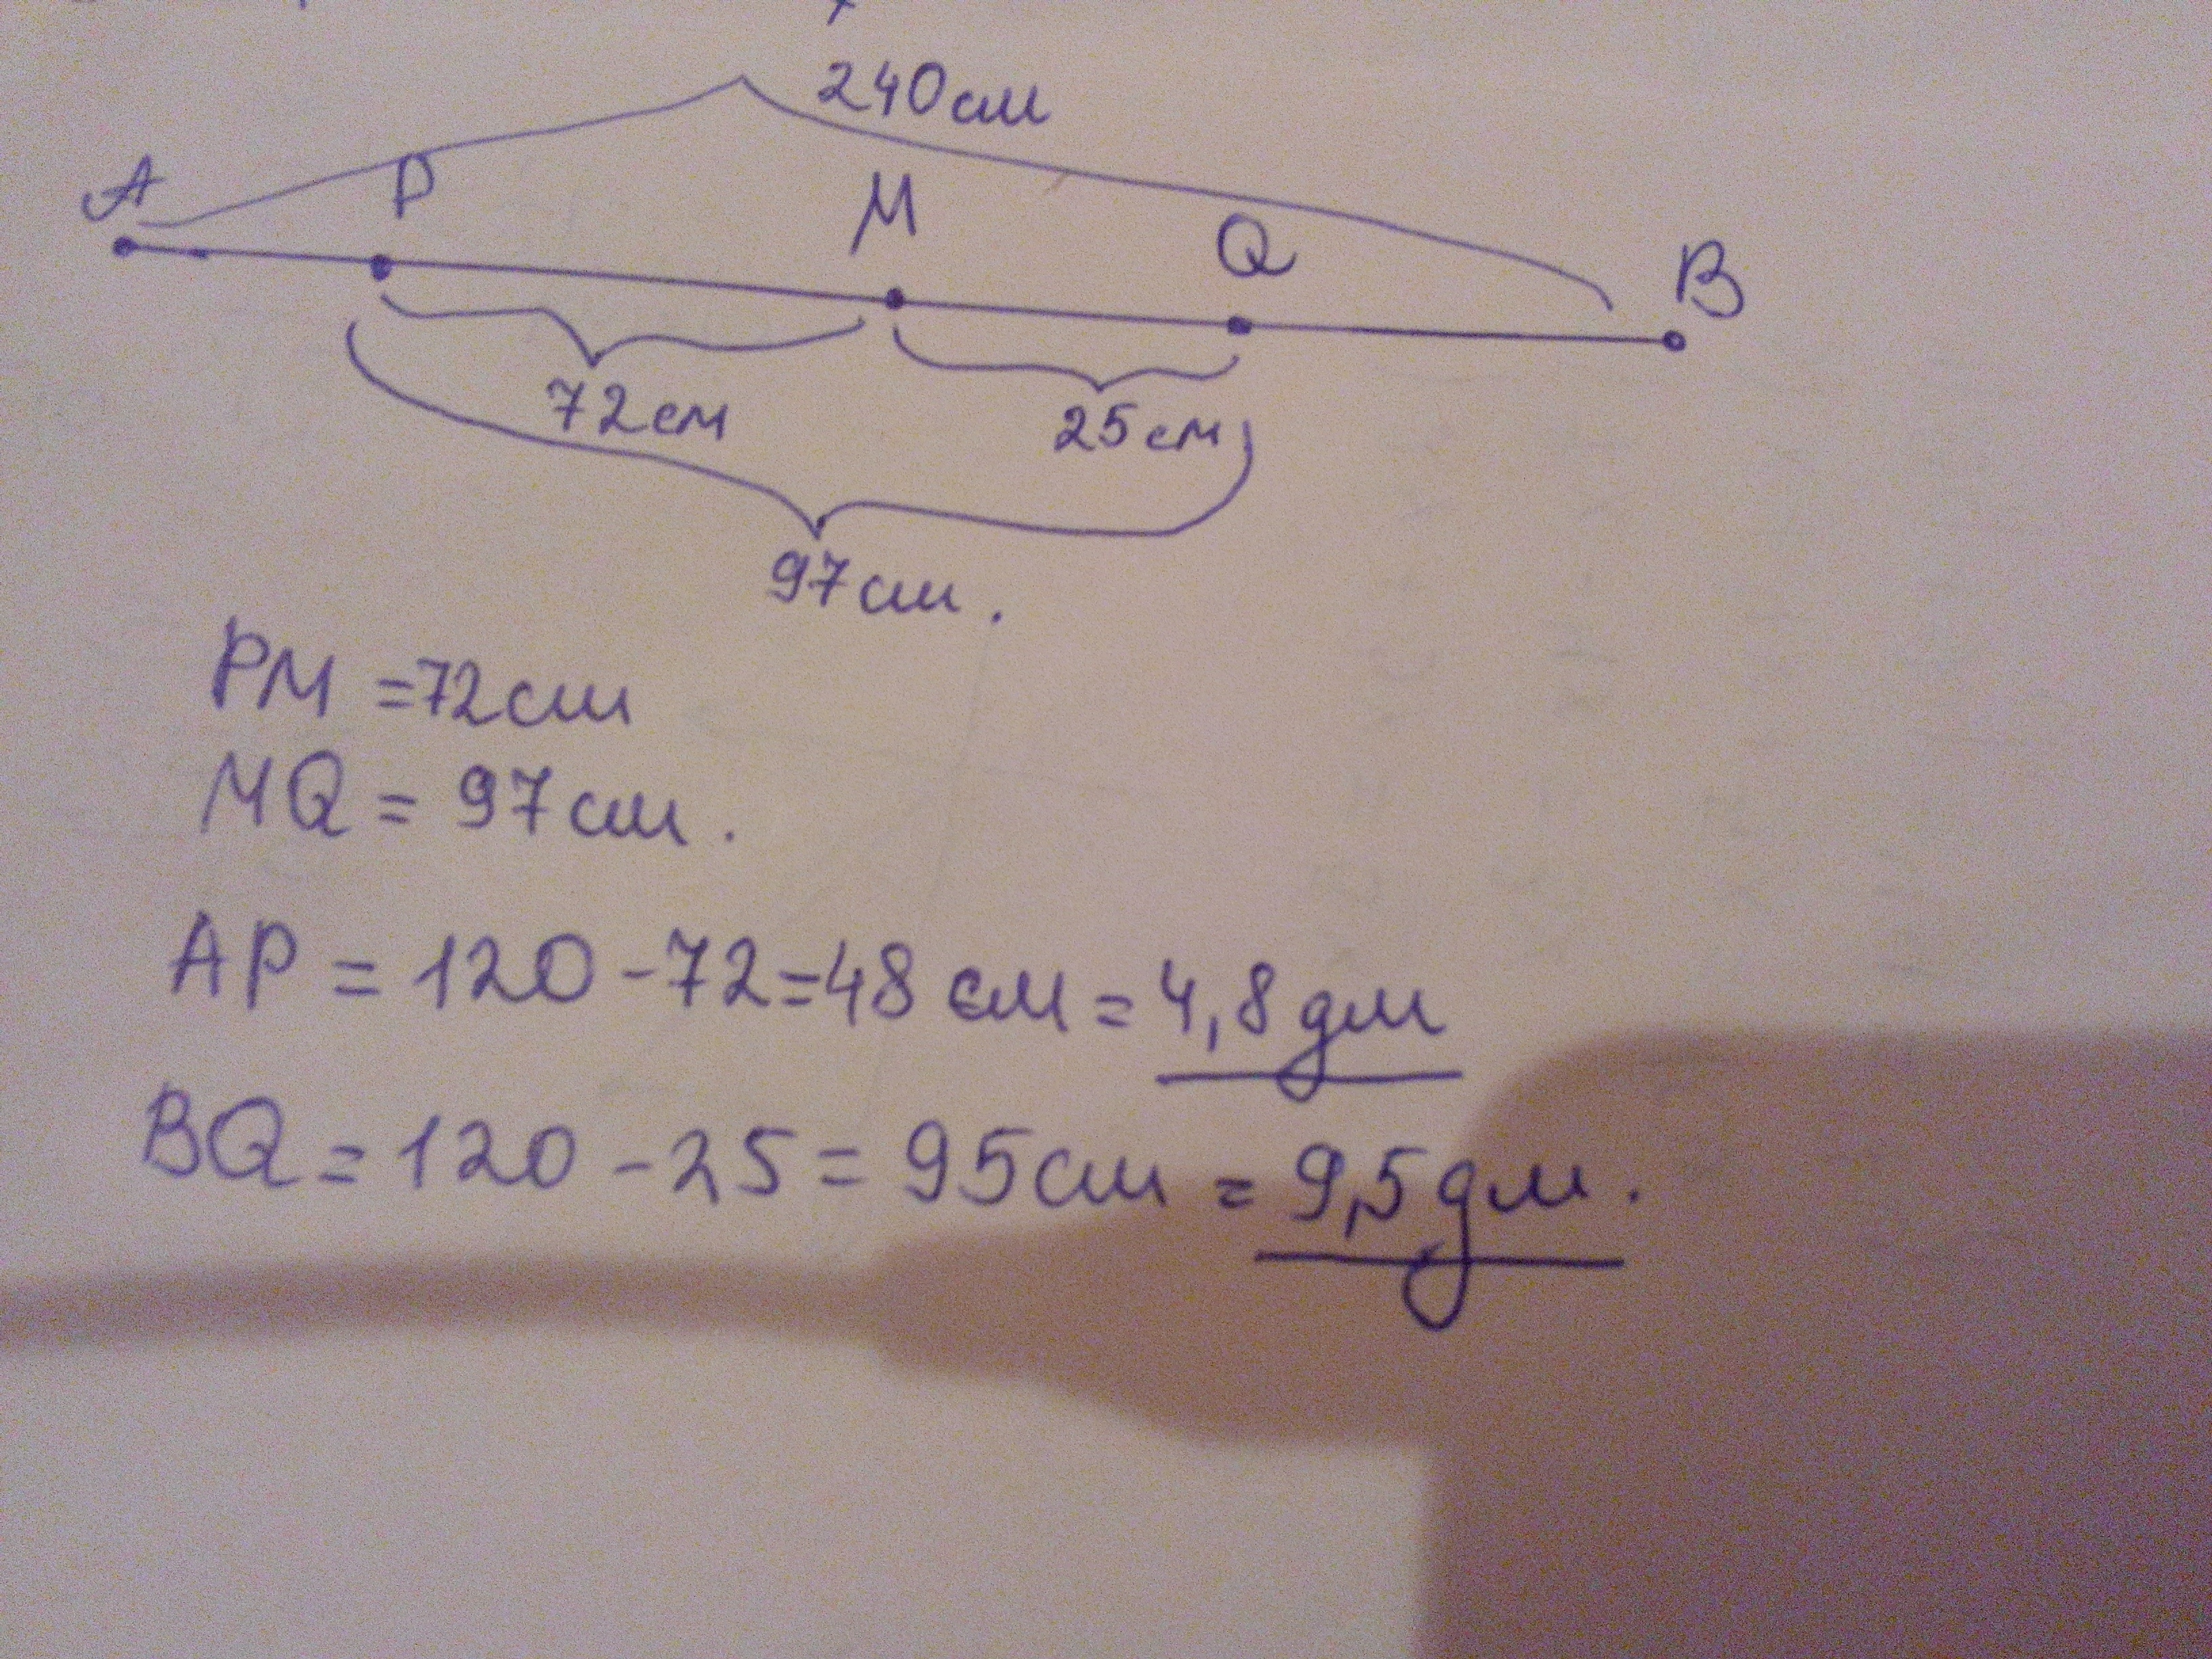 240см
A P M Q B
72см 25см
97см.
PM =72см
MQ = 97см.
AP = 120-72=48 см = 4,8 дм
BQ = 120-25 = 95см = 9,5 дм.